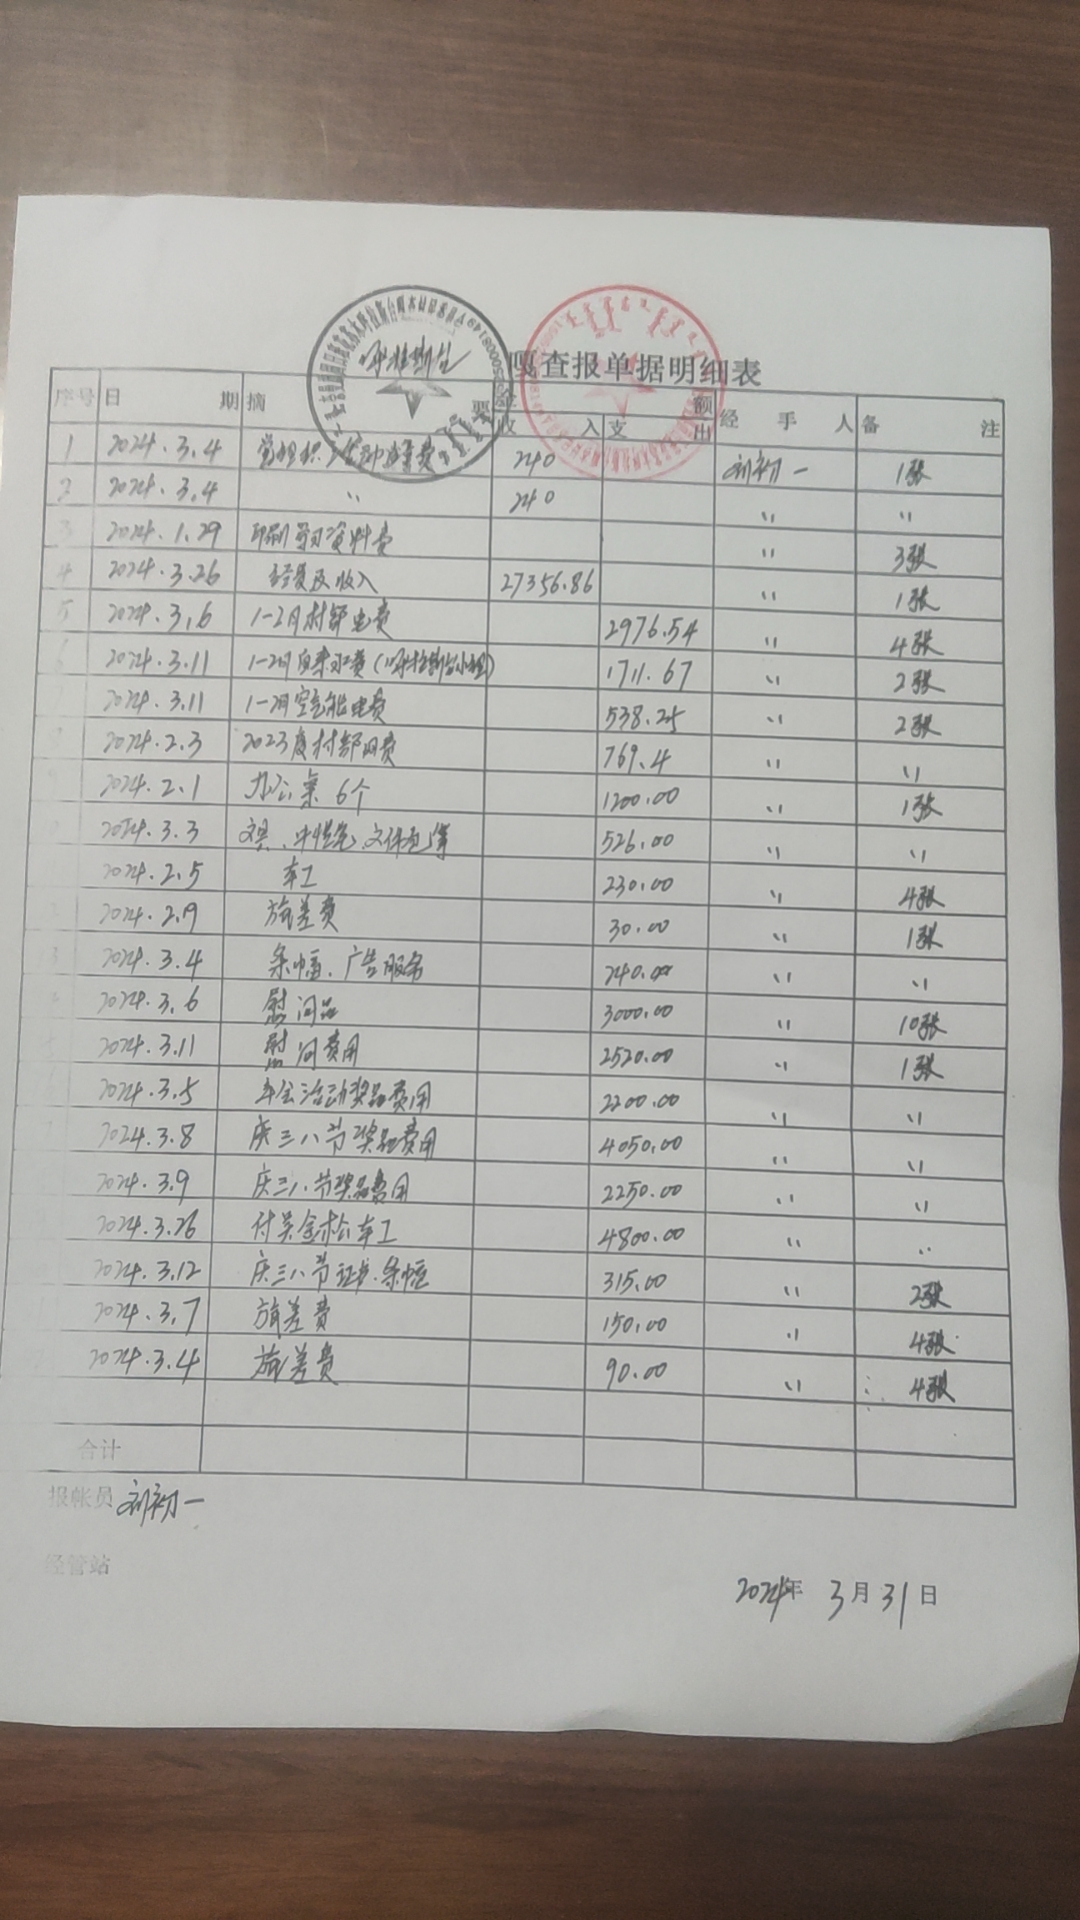 嘎查报单据明细表
序号 日期 摘要 金额 经手人 备注
收入 支出
1 2024.3.4 党组织 费 240 刘初一 1张
2 2024.3.4 〃 240 〃 〃
3 2024.1.29 印刷学习资料费 〃 3张
4 2024.3.26 收入 27356.86 〃 1张
5 2024.3.6 1-2月村部电费 2976.54 〃 4张
6 2024.3.11 1-2月自来水费( 小组) 1711.67 〃 2张
2024.3.11 1-2月空气能电费 538.25 〃 2张
2024.2.3 2023度村部网费 769.4 〃 〃
2024.2.1 办公桌 6个 1200.00 〃 1张
2024.3.3 文具、中性笔、文件包等 526.00 〃 〃
2024.2.5 车工 230.00 〃 4张
2024.2.19 旅差费 30.00 〃 1张
13 2024.3.4 条幅、广告服务 240.00 〃 〃
2024.3.6 慰问品 3000.00 〃 10张
2024.3.11 慰问费用 2520.00 〃 1张
2024.3.5 活动奖品费用 2200.00 〃 〃
2024.3.8 庆三八节奖品费用 4050.00 〃 〃
2024.3.9 庆三八节奖品费用 2250.00 〃 〃
2024.3.26 付吴金松车工 4800.00 〃 〃
2024.3.12 庆三八节证书.条幅 315.00 〃 2张
2024.3.7 旅差费 150.00 〃 4张
2024.3.4 旅差费 90.00 〃 4张
合计
报帐员 刘初一
经管站
2024年 3月31日